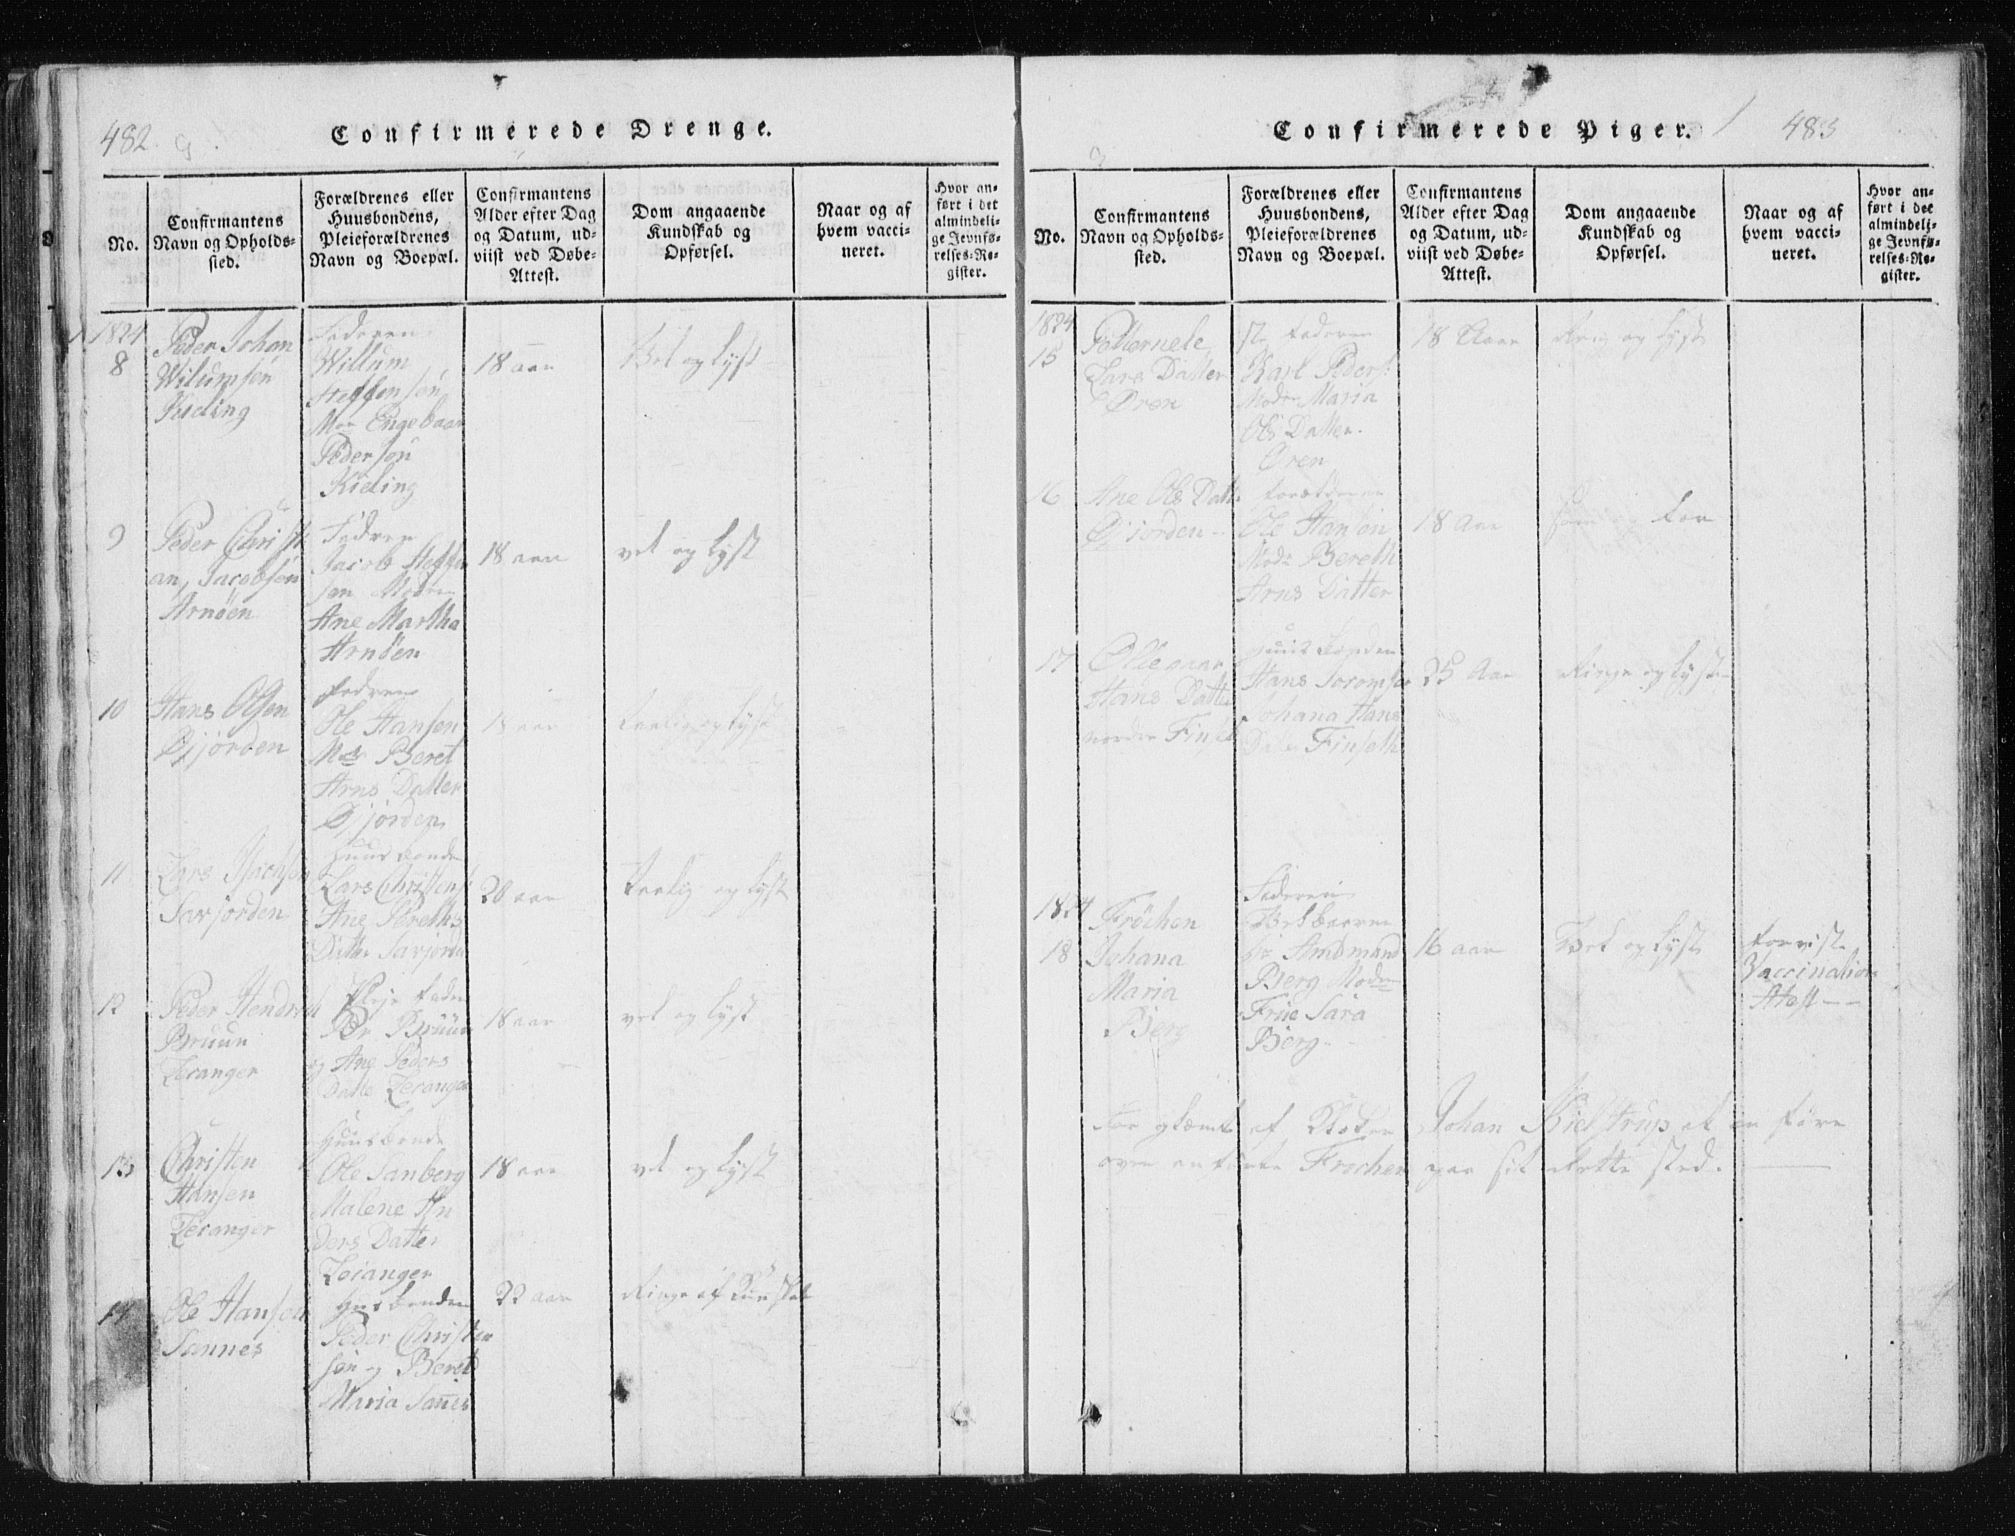 482.
Confirmerede Drenge.
No.
Confirmantens
Navn og Opholds-
sted.
Forældrenes eller
Huusbondens,
Pleieforældrenes
Navn og Boepæl.
Confirmantens
Alder efter Dag
og Datum, ud-
viist ved Døbe-
Attest.
Dom angaaende
Kundskab og
Opførsel.
Naar og af
hvem vacci-
neret.
Hvor an-
ført i det
almindeli-
ge Jevnfø-
relses-Re-
gister.
1824
8
Peder Johan
Wilumsøn
Kieling
Federen
Willum
Steffensøn
Moe Engebaar
Pedersøn
Kieling
18 aar
Vel og Lyst
9
Peder Christi
an, Jacobsøn
Arnøen
Fedren
Jacob Steffen
søn Modren
Ane Martha
Arnøen
18 aar
vel og Lyst
10
Hans Olsen
Øjjorden
Fedren
Ole Hansen
Mode Beret
Arns Datter
Øjjorden
18 aar
og Lyst
11
Lars Isachsøn
Sarjorden
Huusbonde
Lars Christens
Ane
Datter Sarjorde
20 aar
og Lyst
12
Peder Hendrich
Bruun
Leranger
Pleje Fader
Per Bruun
og Ane Peders
Datte Leranger
18 aar
vel og Lyst
13
Christen
Hansen
Leranger
Huusbonde
Ole Sanberg
Malene An
ders Datter
Leranger
18 aar
vel og Lyst
14
Ole Hansen
Sannes
Husbonden
Peder Christen
søn og Beret
Maria Sannes
22 aar
Ringe af Kunskab
Confirmerede Piger.
483
No.
Confirmantens
Navn og Opholds-
sted.
Forældrenes eller
Huusbondens,
Pleieforældrenes
Navn og Boepæl.
Confirmantens
Alder efter Dag
og Datum, ud-
viist ved Døbe-
Attest.
Dom angaaende
Kundskab og
Opførsel.
Naar og af
hvem vacci-
neret.
Hvor an-
ført i det
almindeli-
ge Jevnfø-
relses-Re-
gister.
1824
15
Petternele
Lars Datter
Øren
Federen
Karl Peders
Moder Maria
Ols Datter.
Øren
18 Aar
og Lyst
16
Ane Ols Datte
Øjjorden
Forældrene
Ole Hansøn
Mode Bereth
Arns Datter
18 Aar
som før
17
Ollegaar
Hans Datter
nordre Finset
Huusbonden
Hans
Johana Hans
Datte Finseth
25 Aar
Ringe og Lyst
1824
18
Frøchen
Johana
Maria
Berg
Federen
Velbaaren
Hr Amdmand
Berg Modren
Frue Sara
Berg
16 aar
Vel og Lyst
Forviste
Vaccination
Attest
For glemt af Kloker Johan Kielstrup at an føre
oven anførte Frøchen paa sit rette sted.